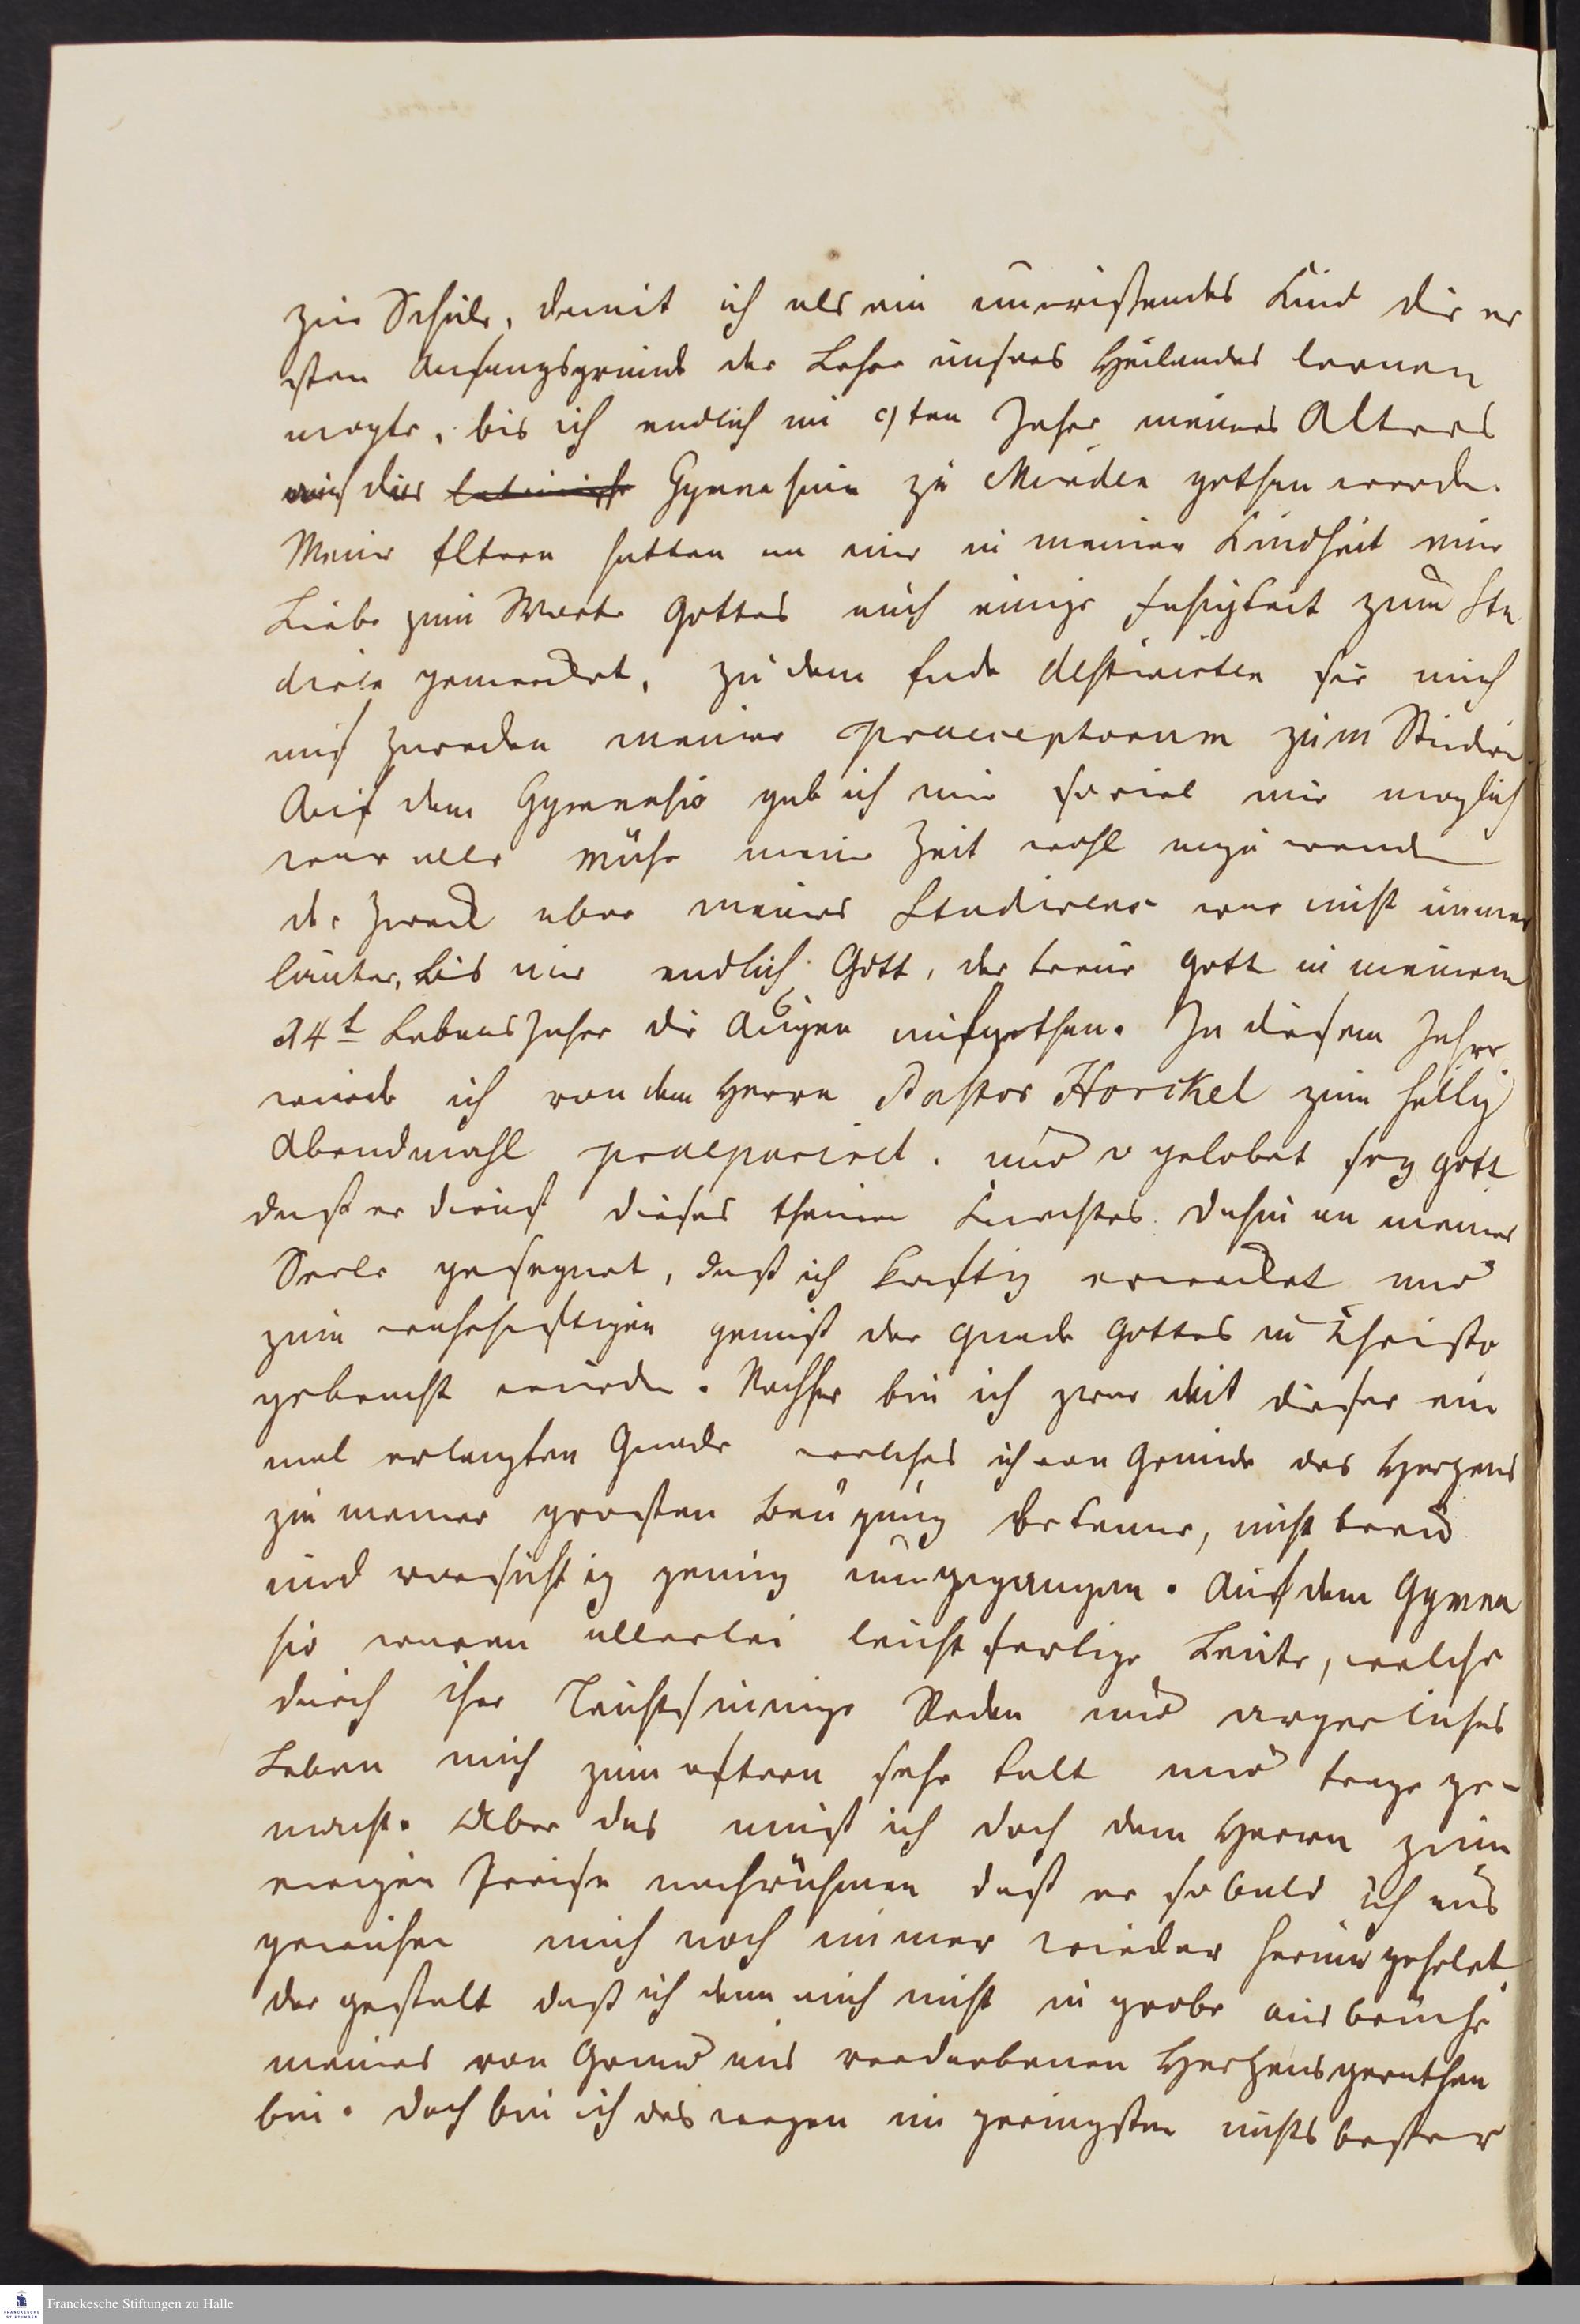 zur Schule, damit ich als ein unwißendes Kind die er
sten Anfangsgründe der Lehre unsres Heilandes lernen
mogte, bis ich endlich im 9ten Jahre meines Alters
auf das lateinische Gymnasium zu Minden gethan worden.
Meine Eltern hatten an mir in meiner Kindheit eine
Liebe zum Worte Gottes auch einige Fahigkeit zum Stu
diren gemercket, zu dem Ende destinirten sie mich
auf zureden meiner Praeceptorum zum Studiren
Auf dem Gymnasio gab ich mir soviel mir moglich
war alle Mühe meine Zeit wohl anzuwenden
der Zweck aber meines Studirens war nicht immer
lauter, bis mir endlich Gott, der treue Gott in meinem
14t Lebens Jahre die Augen aufgethan. In diesem Jahre
wurde ich von dem Herrn Pastor Horckel zum heilig
Abendmahl praeparirt. und o gelobet sey Gott
daß er dienst dieses theuren Knechtes dahin an meiner
Seele gesegnet, daß ich kraftig erwecket und
zum wahrhaftigen genuß der Gnade Gottes in Christo
gebracht wurde. Nachher bin ich zwar mit dieser ein
mal erlangten Gnade welches ich von Grunde des Hertzens
zu meiner grosten Beugung bekenne, nicht treu
und vorsichtig genug umgegangen. Auf dem Gymna
sio waren allerlei leichtfertige Leute, welche
durch ihre leichtsinnige Reden und argerliches
Leben mich zum oftern sehr kalt und trage ge-
macht. Aber das muß ich doch dem Herrn zum
ewigen Preise nachrühmen daß er sobald ich aus
gewichen mich noch immer wieder herum geholet
der gestalt daß ich denn auch nicht in grobe ausbrüche
meines von Grund aus verdorbenen Hertzens gerathen
bin. doch bin ich deswegen im geringsten nichts beßer